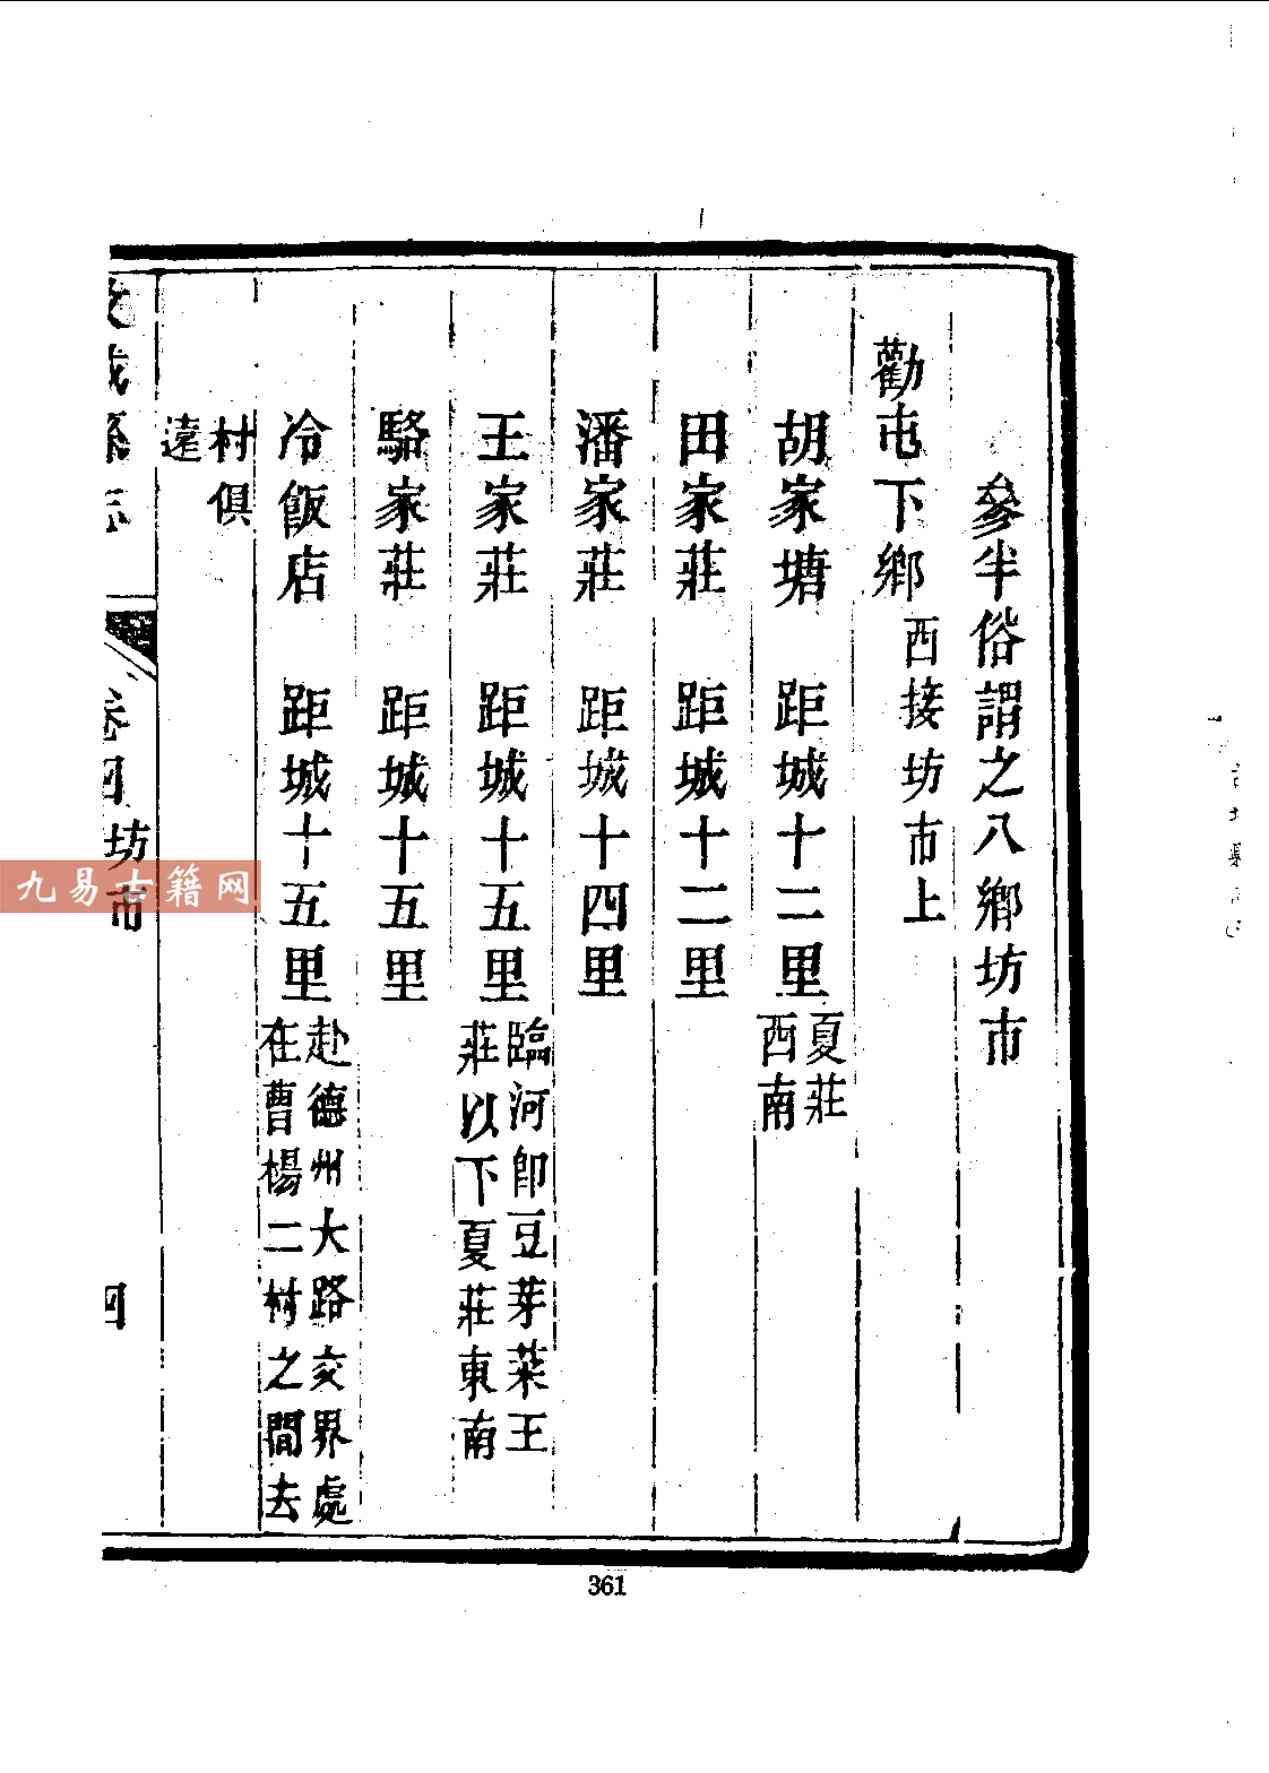 參半俗謂之八鄉坊市
勸屯下鄉西接坊市上
胡家塘 距城十二里夏莊
西南
田家莊 距城十二里
潘家莊 距城十四里
王家莊 距城十五里臨河卽豆芽菜王
莊以下夏莊東南
駱家莊 距城十五里
冷飯店 距城十五里赴德州大路交界處
在曹楊二村之間去
村俱
遠
卷四 坊市
四
九易古籍网
361